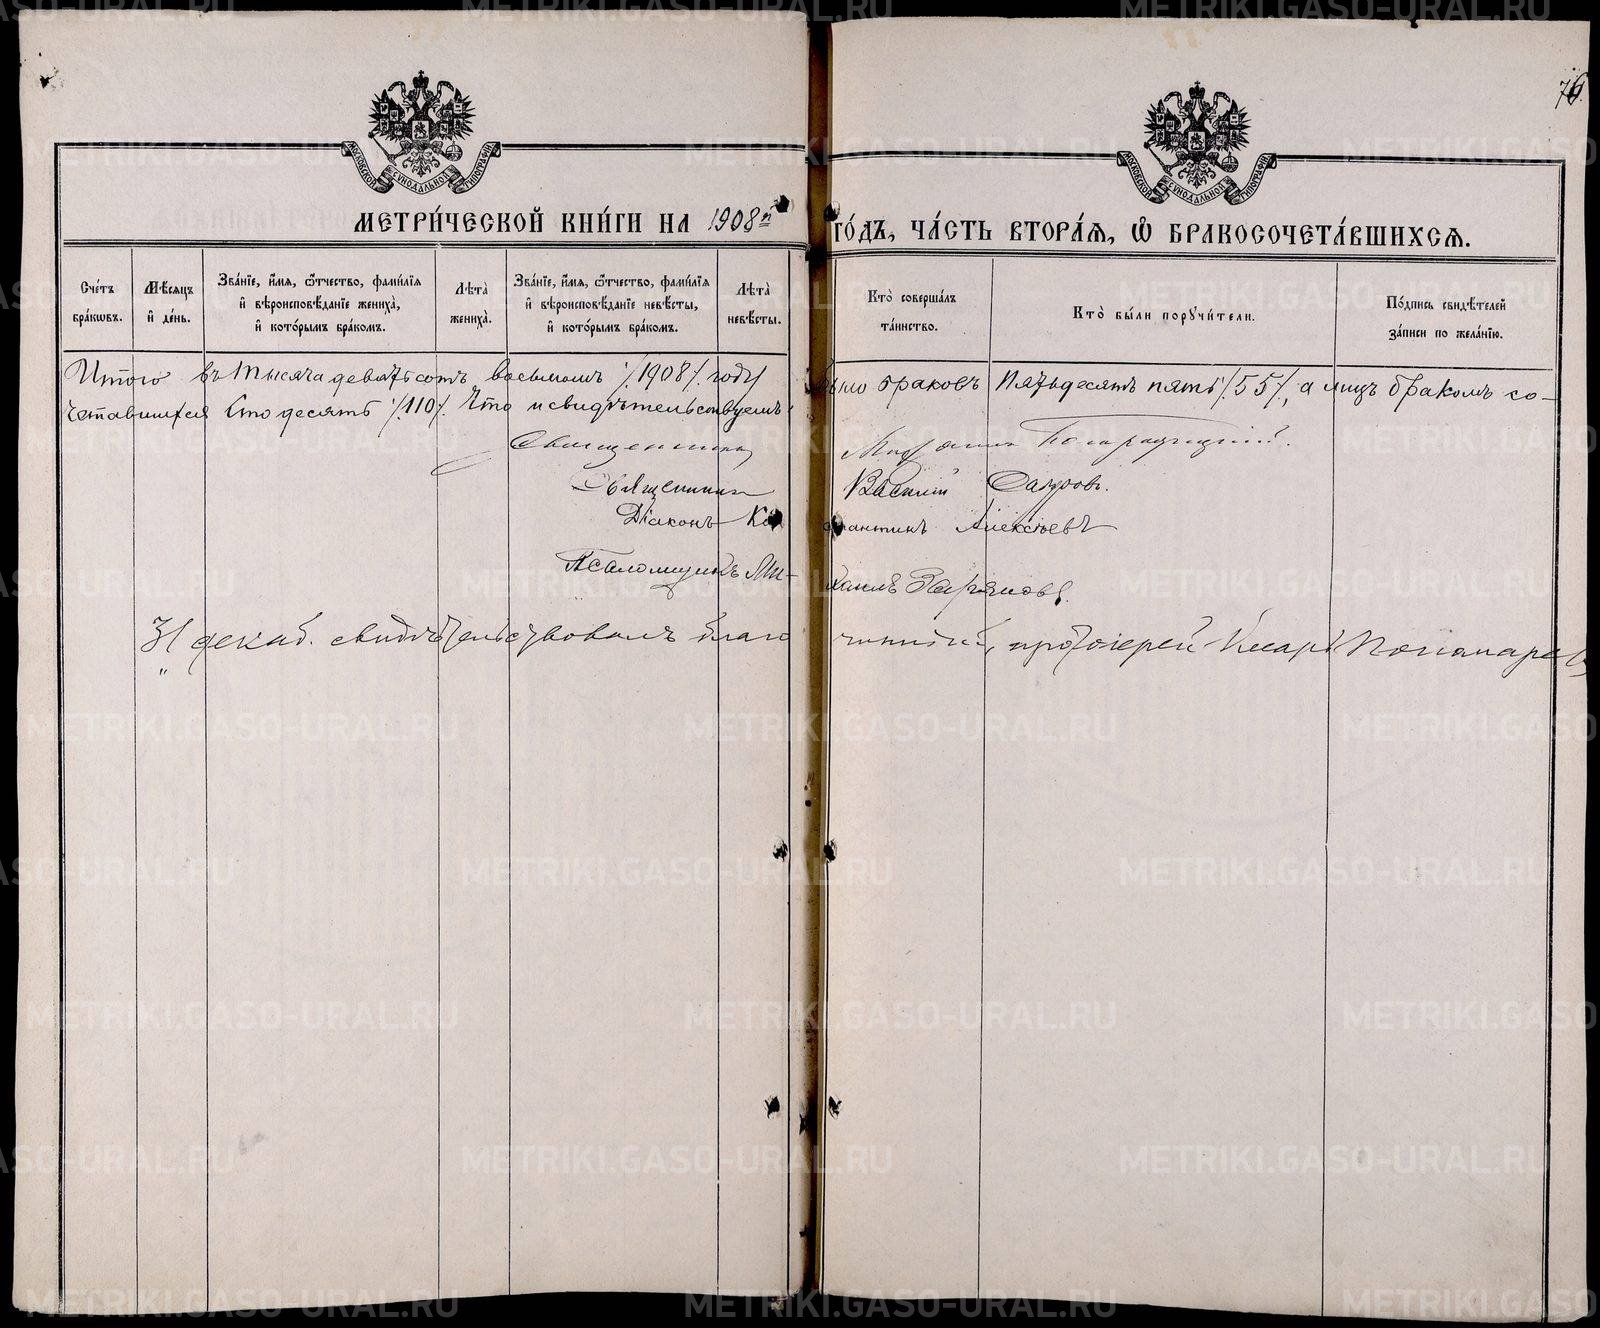 76
МОСКОВСКОЙ СѴНОДАЛЬНОЙ ТИПОГРАФІИ
МОСКОВСКОЙ СѴНОДАЛЬНОЙ ТИПОГРАФІИ
МЕТРИ́ЧЕСКОЙ КНИ́ГИ НА 1908й ГО́ДЪ, ЧА́СТЬ ВТОРА́Я, Ѡ҆ БРАКОСОЧЕТА́ВШИХСЯ.
Сче́тъ бра́кѡвъ.
Мѣ́сяцъ и҆ де́нь.
Зва́нїе, и҆́мя, ѻ҆́тчество, фами́лїя и҆ вѣроисповѣ́данїе жениха̀, и҆ кото́рымъ бра́комъ.
Лѣта̀ жениха̀.
Зва́нїе, и҆́мя, ѻ҆́тчество, фами́лїя и҆ вѣроисповѣ́данїе невѣ́сты, и҆ кото́рымъ бра́комъ.
Лѣта̀ невѣ́сты.
Кто̀ соверша́лъ та́инство.
Кто̀ бы́ли порꙋчи́тели.
По́дпись свидѣ́телей за́писи по жела́нїю.
Итого въ тысяча девятьсотъ восьмомъ /1908/ году было браковъ пятьдесятъ пять /55/, а лицъ бракомъ со-
четавшихся сто десять /110/. Что и свидѣтельствуемъ:
Священникъ
Священникъ Василій
Діаконъ Константинъ Алексѣевъ
Псаломщикъ Михаилъ
31 декаб. свидѣтельствовалъ благочинный, протоіерей Пономаревъ
METRIKI.GASO-URAL.RU